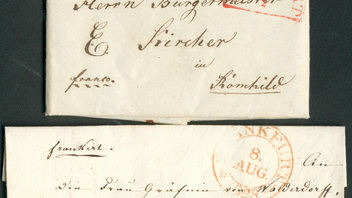 Herrn Bürgermeister
E Kircher
in
franco.
Römhild
frankirt.
FRANKFURT
8.
AUG
An
die Frau Gräfin von Walderdorff.